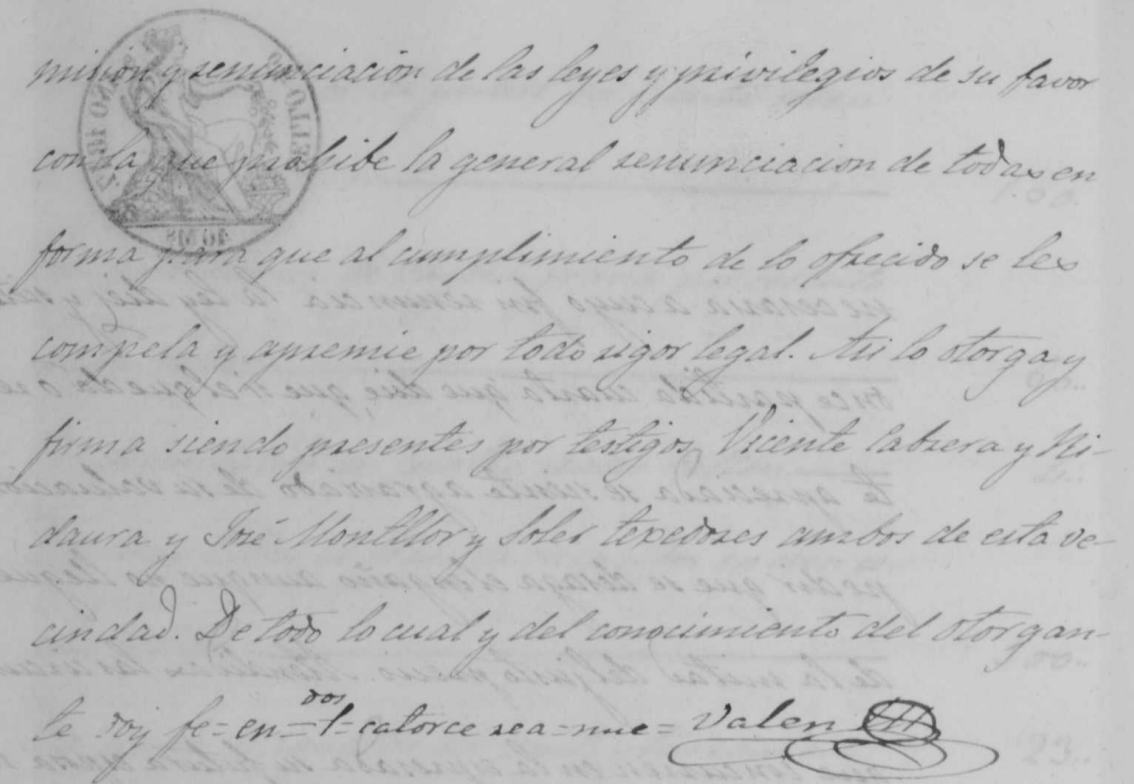 mision y renunciacion de las leyes y privilegios de su favor
con la que prohibe la general renunciacion de todas en
forma para que al cumplimiento de lo ofrecido se les
compela y apremie por todo rigor legal. Asi lo otorga y
firma siendo presentes por testigos Vicente Cabrera y Ri-
daura y José Montllor y Soler texedores ambos de esta ve-
cindad. De todo lo cual y del conocimiento del otorgan-
te doy fe = en = dos = catorce rea = nue = Valen